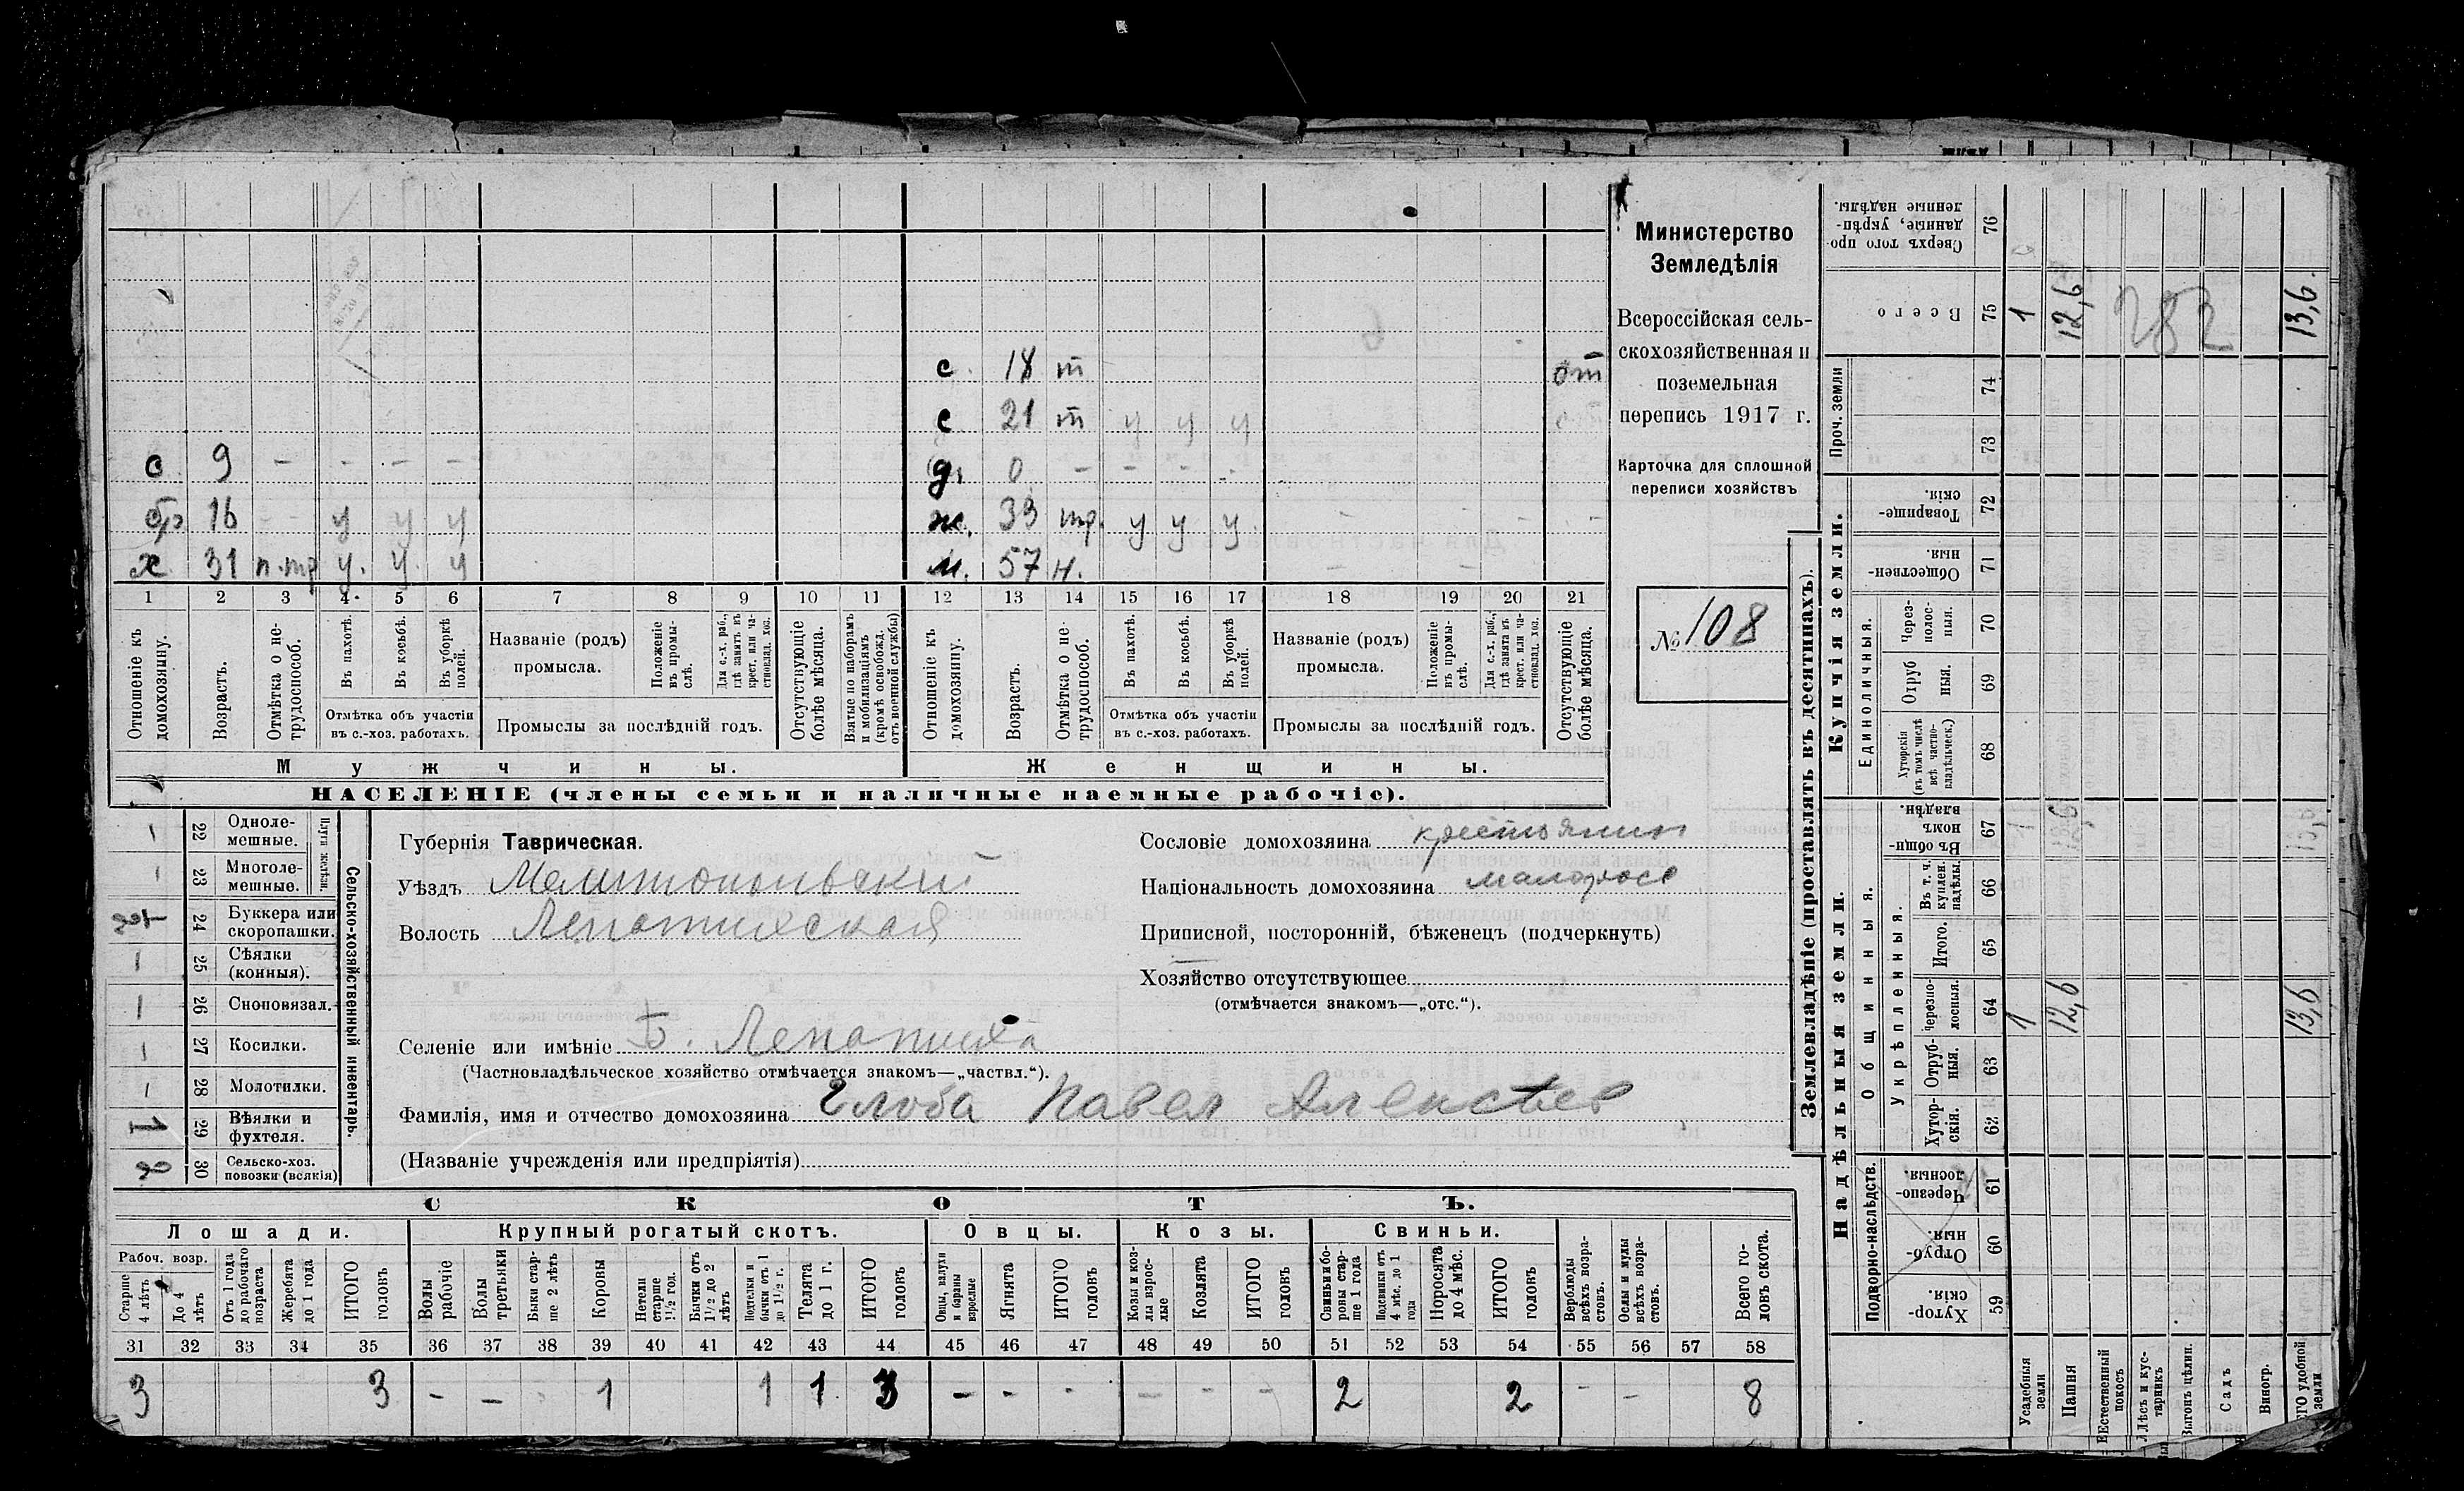 с. 18 т от
с 21 т у у у
с 9 – – – – д. 0 – – – -
бр 16 – – у у у ж. 33 тр. у у у. – - - -
х 31 п.тр у. у. у м. 57 н. – -
1 2 3 4 5 6 7 8 9 10 11 12 13 14 15 16 17 18 19 20 21
Отношеніе къ домохозяину.
Возрастъ.
Отмѣтка о не-
трудоспособ.
Въ пахотѣ.
Въ косьбѣ.
Въ уборкѣ полей.
Отмѣтка объ участіи
въ с.-хоз. работахъ.
Названіе (родъ)
промысла.
Положеніе въ промы-
слѣ.
Для с.-х. раб., гдѣ занятъ въ крест. или ча-
стновлад. хоз.
Промыслы за послѣдній годъ.
Отсутствующіе болѣе мѣсяца.
Взятые по наборамъ и мобилизаціямъ (кромѣ освобожд. отъ военной службы)
Отношеніе къ домохозяину.
Возрастъ.
Отмѣтка о не-
трудоспособ.
Въ пахотѣ.
Въ косьбѣ.
Въ уборкѣ полей.
Отмѣтка объ участіи
въ с.-хоз. работахъ.
Названіе (родъ)
промысла.
Положеніе въ промы-
слѣ.
Для с.-х. раб., гдѣ занята въ крест. или ча-
стновлад. хоз.
Промыслы за послѣдній годъ.
Отсутствующіе болѣе мѣсяца.
Мужчины. Женщины.
НАСЕЛЕНІЕ (члены семьи и наличные наемные рабочіе).
Министерство
Земледѣлія
Всероссійская сель-
скохозяйственная и
поземельная
перепись 1917 г.
Карточка для сплошной
переписи хозяйствъ
№ 108
Сельско-хозяйственный инвентарь.
Плуги желѣзн.
– 22 Одноле-
мешные.
– 23 Многоле-
мешные.
24 Буккера или
скоропашки.
– 25 Сѣялки
(конныя).
– 26 Сноповязал.
– 27 Косилки.
– 28 Молотилки.
1 29 Вѣялки и
фухтеля.
2 30 Сельско-хоз.
повозки (всякія)
Губернія Таврическая.
Уѣздъ Мелитопольскій
Волость Лепатихская
Сословіе домохозяина крестьянин
Національность домохозяина малоросс
Приписной, посторонній, бѣженецъ (подчеркнуть)
Хозяйство отсутствующее
(отмѣчается знакомъ—„отс.“).
Селеніе или имѣніе Б. Лепатиха
(Частновладѣльческое хозяйство отмѣчается знакомъ—„частвл.“).
Фамилія, имя и отчество домохозяина Глоба Павел Алексѣев
(Названіе учрежденія или предпріятія)
СКОТЪ.
Лошади. Крупный рогатый скотъ. Овцы. Козы. Свиньи.
Рабоч. возр.
Старше 4 лѣтъ
До 4 лѣтъ
Отъ 1 года до рабочаго возраста
Жеребята до 1 года
ИТОГО головъ
Волы рабочіе
Волы третьяки
Быки стар-
ше 2 лѣтъ
Коровы
Нетели старше 1½ год.
Бычки отъ 1½ до 2 лѣтъ
Подтелки и бычки отъ 1 до 1½ г.
Телята до 1 г.
ИТОГО головъ
Овцы, валухи и бараны взрослые
Ягнята
ИТОГО головъ
Козы и коз-
лы взрос-
лые
Козлята
ИТОГО головъ
Свиньи и бо-
ровы стар-
ше 1 года
Подсвинки отъ 4 мѣс. до 1 года
Поросята до 4 мѣс.
ИТОГО головъ
Верблюды всѣхъ возра-
стовъ.
Ослы и мулы всѣхъ возра-
стовъ.
Всего го-
ловъ скота.
31 32 33 34 35 36 37 38 39 40 41 42 43 44 45 46 47 48 49 50 51 52 53 54 55 56 57 58
3 3 - – 1 1 1 3 – - - – - – 2 2 – – 8
Землевладѣніе (проставлять въ десятинахъ).
Купчія земли.
Надѣльныя земли.
Сверхъ того про-
данные, укрѣп-
ленные надѣлы.
76
Всего
75 1 12,6 282 13,6
Проч. земли
74
73
Товарище-
скія.
72
Обществен-
ныя.
71
Единоличныя.
Через-
полос-
ныя.
70
Отруб
ныя.
69
Хуторскія
(въ томъ числѣ
всѣ частно-
владѣльческ.)
68
Общинныя.
Въ общи-
номъ
владѣн.
67 1
Укрѣпленныя.
Въ т. ч.
куплен.
надѣлы.
66
Итого.
65
Черезпо-
лосныя.
64 1 12,6 13,6
Отруб-
ныя.
63
Хутор-
скія.
62
Подворно-наслѣдств.
Черезпо-
лосныя.
61
Отруб-
ныя.
60
Хутор-
скія.
59
Усадебныя
земли
Пашня
Естественный
покосъ
Лѣсъ и кус-
тарникъ
Выгонъ цѣлин.
Садъ
Виногр.
удобной
земли